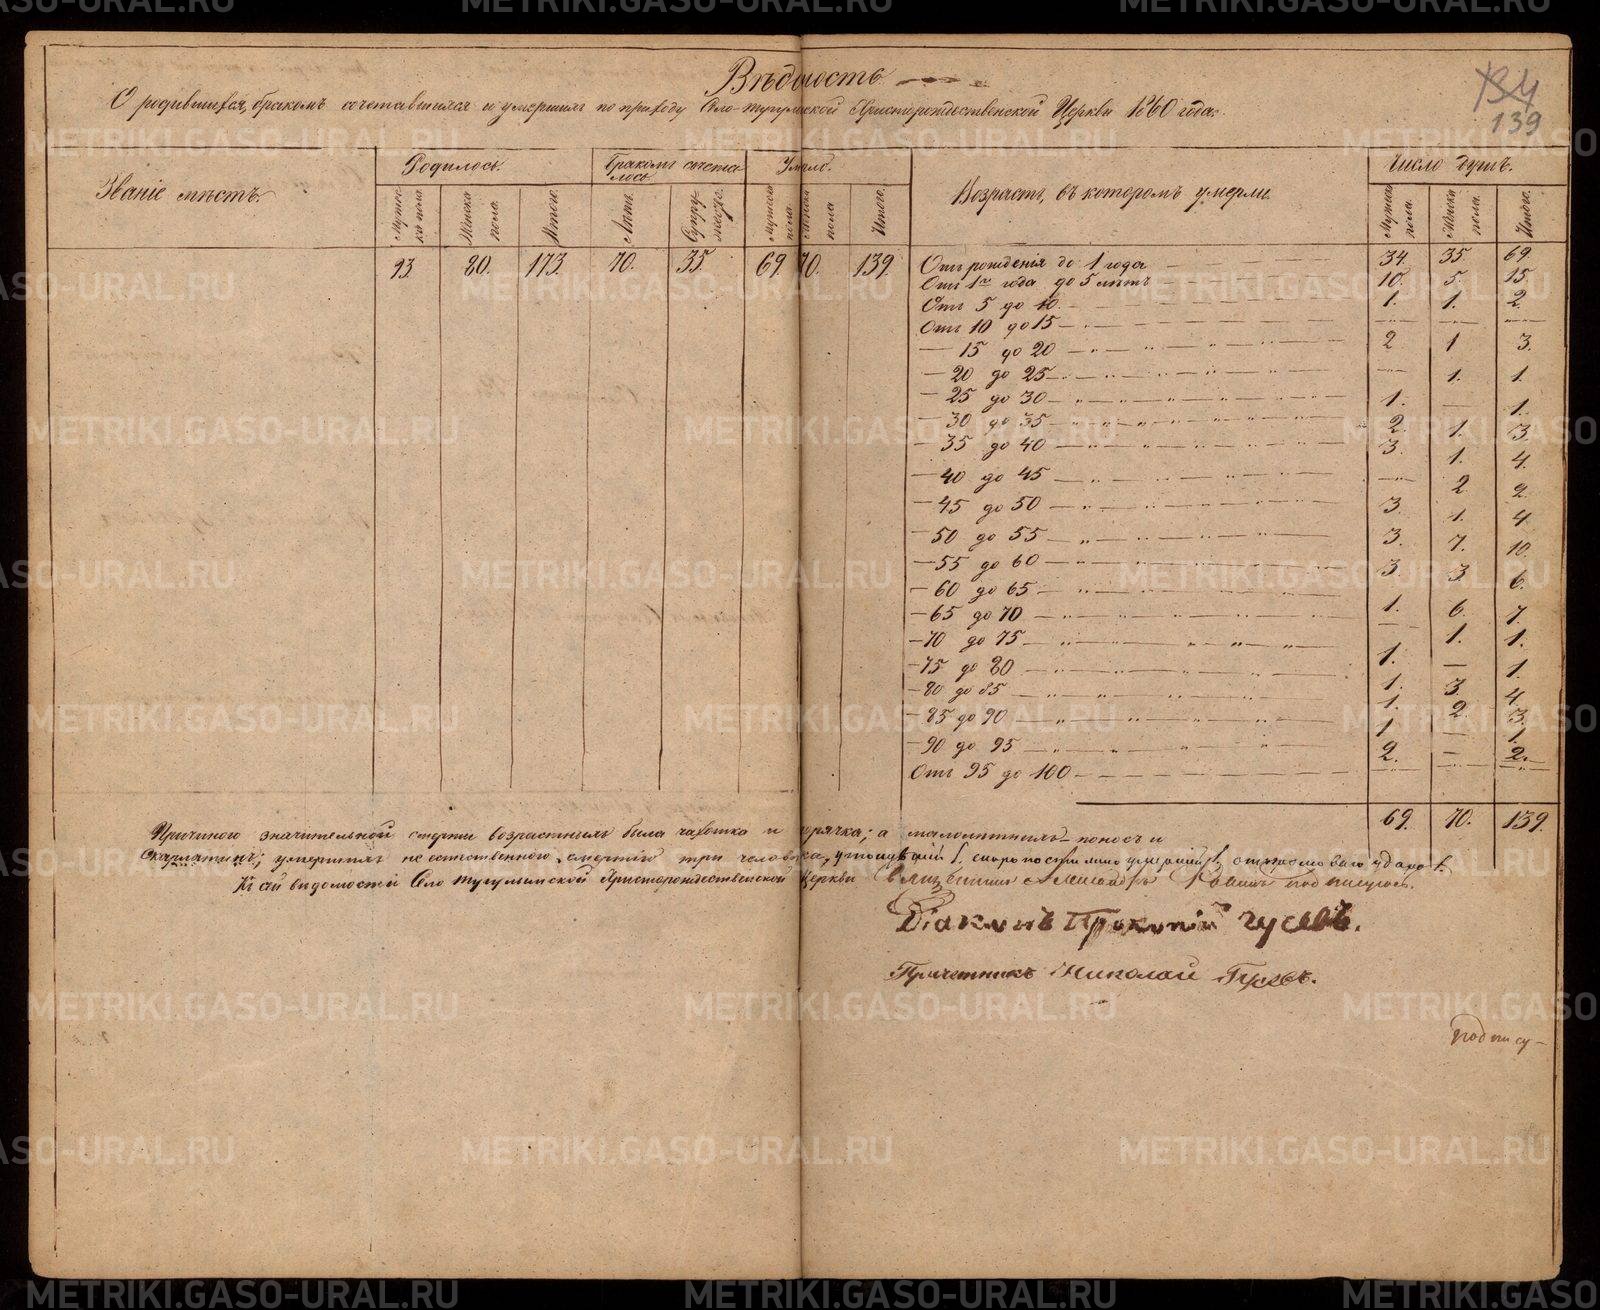 Вѣдомость
О родившихся, бракомъ сочетавшихся и умершихъ по приходу Село-Тугулымской Христорождественской Церкви 1860 года.
134
139
Званіе мѣстъ.
Родилось.
Бракомъ сочеталось
Умерло.
Возрастъ, въ которомъ умерли.
Число душъ.
Мужеска пола
Женска пола.
Итого.
Лѣтъ.
Супружествъ.
Мужеска пола.
Женска пола
Итого.
Мужеска пола.
Женска пола.
Итого.
93. 80. 173. 70. 35. 69. 70. 139.
Отъ рожденія до 1 года 34. 35 69.
Отъ 1го года до 5 лѣтъ 10. 5. 15.
Отъ 5 до 10. 1. 1. 2.
Отъ 10 до 15 — — —
— 15 до 20 2 1 3.
— 20 до 25 — 1. 1.
— 25 до 30 1. — 1.
— 30 до 35 2. 1. 3.
— 35 до 40 3. 1. 4.
— 40 до 45 — 2 2.
— 45 до 50 3. 1. 4
— 50 до 55 3. 7. 10.
— 55 до 60 3. 3. 6.
— 60 до 65 1. 6. 7.
— 65 до 70 — 1. 1.
— 70 до 75 1. — 1.
— 75 до 80 1. 3. 4.
— 80 до 85 1. 2. 3.
— 85 до 90 1 — 1.
— 90 до 95 2. — 2.
Отъ 95 до 100 — — —
69. 70. 139.
Причиною значительной смерти возрастныхъ была чахотка и горячка; а малолѣтнихъ поносъ и
Скарлатинъ; умершихъ неестественною смертію три человѣка, утонувшій 1. скоропостижно умершій 1. отъ громоваго удара 1.
Къ сей вѣдомости Село Тугулымской Христорождественской Церкви Священникъ Александръ подписуюсь.
Діаконъ Прокопій Гусевъ.
Причетникъ Николай Гусевъ.
подпису-
METRIKI.GASO-URAL.RU